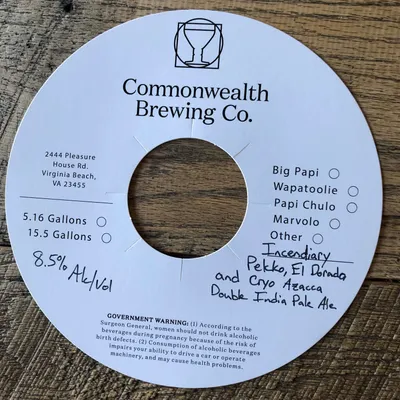 Commonwealth
Brewing Co.
2444 Pleasure
House Rd.
Virginia Beach,
VA 23455
5.16 Gallons
15.5 Gallons
8.5% Alc/Vol
Big Papi
Wapatoolie
Papi Chulo
Marvolo
Other
Incendiary
Pekko, El Dorado
and Cryo Azacca
Double India Pale Ale
GOVERNMENT WARNING: (1) According to the
Surgeon General, women should not drink alcoholic
beverages during pregnancy because of the risk of
birth defects. (2) Consumption of alcoholic beverages
impairs your ability to drive a car or operate
machinery, and may cause health problems.